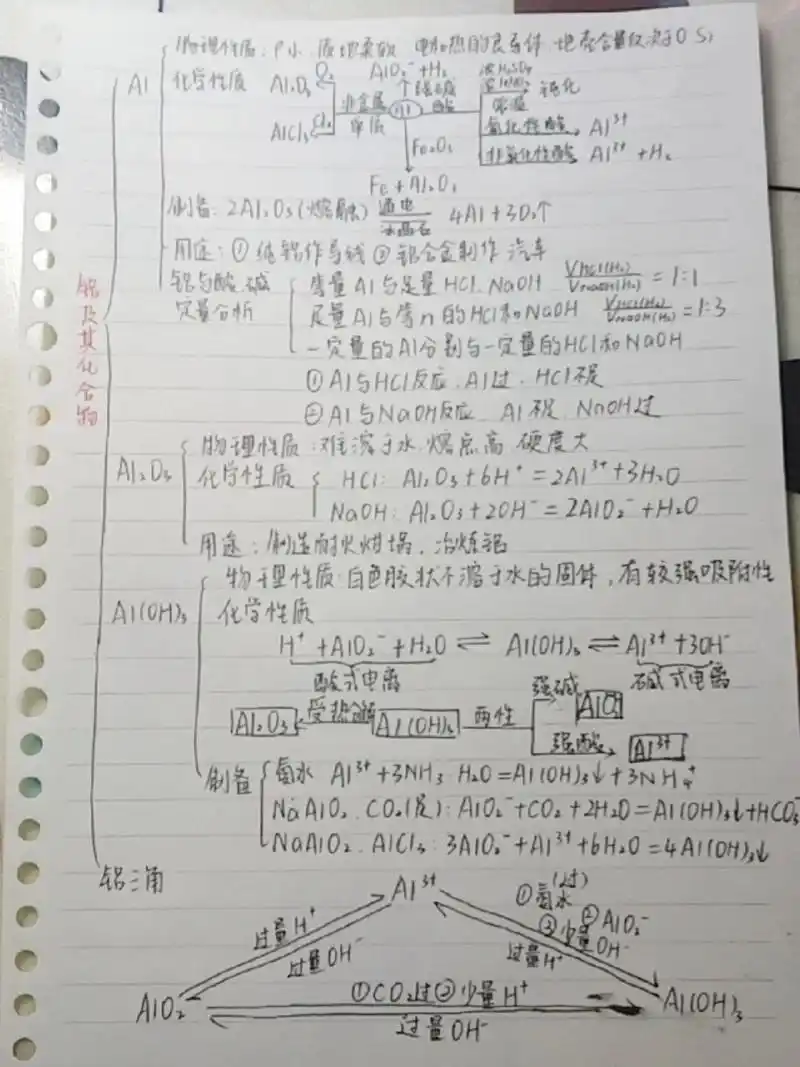 铝及其化合物
Al
物理性质: ρ小 质地柔软 电和热的良导体 地壳含量仅次于O Si
化学性质
Al₂O₃ O₂ AlO₂⁻+H₂ 浓H₂SO₄
非金属单质 Al 强碱 酸 浓HNO₃ 常温 钝化
AlCl₃ Cl₂ 氧化性酸 Al³⁺
Fe₂O₃ 非氧化性酸 Al³⁺+H₂
Fe+Al₂O₃
制备: 2Al₂O₃(熔融) 通电 冰晶石 4Al+3O₂↑
用途: ①纯铝作导线 ②铝合金制作 汽车
铝与酸.碱定量分析
等量Al与足量HCl.NaOH V HCl(H₂)/V NaOH(H₂)=1:1
足量Al与等n的HCl和NaOH V HCl(H₂)/V NaOH(H₂)=1:3
一定量的Al分别与一定量的HCl和NaOH
①Al与HCl反应.Al过.HCl不足
②Al与NaOH反应. Al不足.NaOH过
Al₂O₃
物理性质:难溶于水.熔点高 硬度大
化学性质
HCl: Al₂O₃+6H⁺=2Al³⁺+3H₂O
NaOH: Al₂O₃+2OH⁻=2AlO₂⁻+H₂O
用途: 制造耐火坩埚. 冶炼铝
Al(OH)₃
物理性质:白色胶状不溶于水的固体,有较强吸附性
化学性质
H⁺+AlO₂⁻+H₂O⇌Al(OH)₃⇌Al³⁺+3OH⁻
酸式电离 碱式电离
强碱 AlO₂⁻
Al₂O₃ 受热分解 Al(OH)₃ 两性
强酸 Al³⁺
制备
氨水 Al³⁺+3NH₃·H₂O=Al(OH)₃↓+3NH₄⁺
NaAlO₂.CO₂(足): AlO₂⁻+CO₂+2H₂O=Al(OH)₃↓+HCO₃⁻
NaAlO₂.AlCl₃: 3AlO₂⁻+Al³⁺+6H₂O=4Al(OH)₃↓
铝三角
Al³⁺
①氨水(过)
②AlO₂⁻
过量H⁺ ③少量OH⁻
过量OH⁻ 过量H⁺
①CO₂过②少量H⁺
AlO₂⁻ Al(OH)₃
过量OH⁻